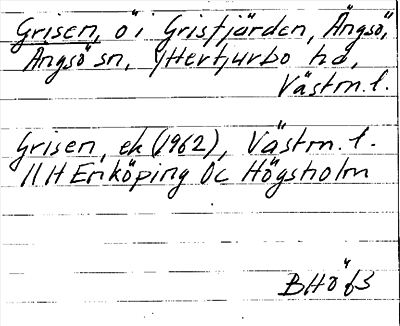 Grisen, ö i Grisfjärden, Ängsö,
Ängsö sn, Yttertjurbo hd,
Västm. l.
Grisen, ek (1962), Västm. l.
11H Enköping Oc Högsholm
BHöfs